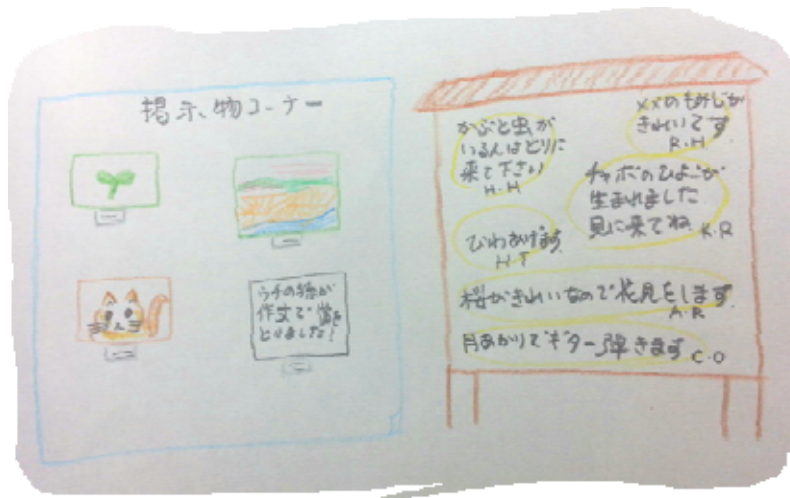 掲示物コーナー
ウチの猫が
作文で賞を
とりました!
かぶと虫が
いるんはとりに
来て下さい
H.H
××のもみじが
きれいです
R.H
チャボのひよこが
生まれました
見に来てね K.R
びわあげます
H.T
桜がきれいなので花見をします
A.R
月あかりでギター弾きます C.O